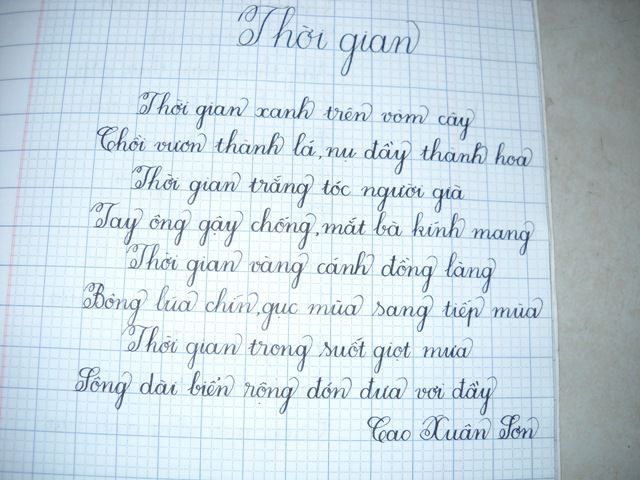 Thời gian
Thời gian xanh trên vòm cây
Chồi vươn thành lá, nụ đầy thành hoa
Thời gian trắng tóc người già
Tay ông gậy chống, mắt bà kính mang
Thời gian vàng cánh đồng làng
Bông lúa chín, gục mùa sang tiếp mùa
Thời gian trong suốt giọt mưa
Sông dài biển rộng đón đưa vơi đầy
Cao Xuân Sơn